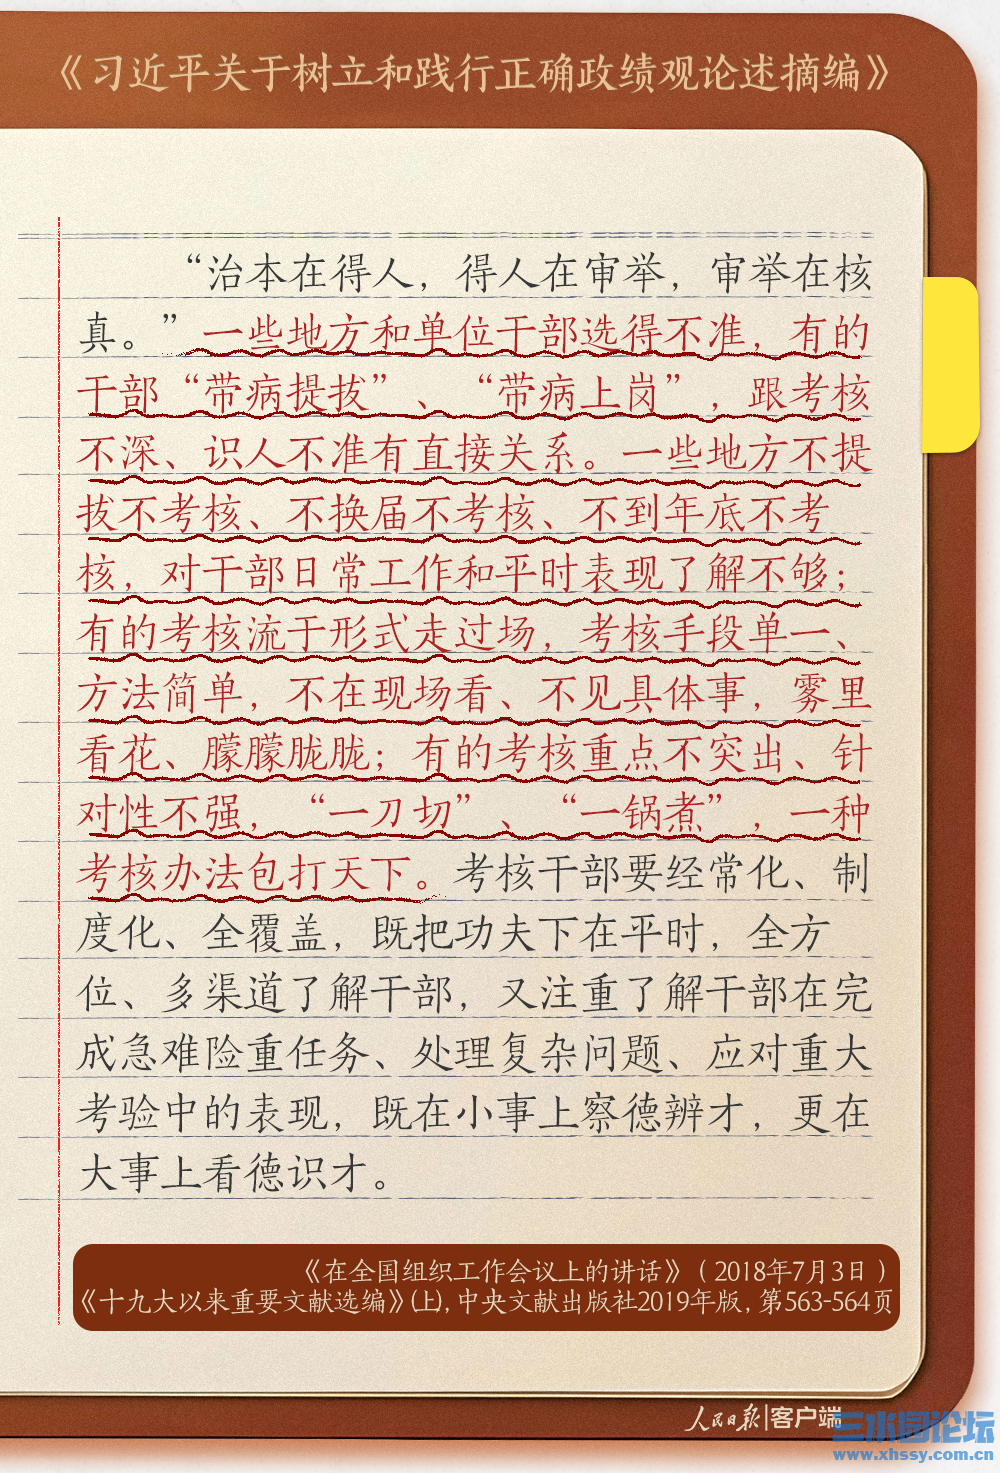 《习近平关于树立和践行正确政绩观论述摘编》
“治本在得人，得人在审举，审举在核
真。”一些地方和单位干部选得不准，有的
干部“带病提拔”、“带病上岗”，跟考核
不深、识人不准有直接关系。一些地方不提
拔不考核、不换届不考核、不到年底不考
核，对干部日常工作和平时表现了解不够；
有的考核流于形式走过场，考核手段单一、
方法简单，不在现场看、不见具体事，雾里
看花、朦朦胧胧；有的考核重点不突出、针
对性不强，“一刀切”、“一锅煮”，一种
考核办法包打天下。考核干部要经常化、制
度化、全覆盖，既把功夫下在平时，全方
位、多渠道了解干部，又注重了解干部在完
成急难险重任务、处理复杂问题、应对重大
考验中的表现，既在小事上察德辨才，更在
大事上看德识才。
《在全国组织工作会议上的讲话》（2018年7月3日）
《十九大以来重要文献选编》(上)，中央文献出版社2019年版，第563-564页
人民日报|客户端
三水园论坛
www.xhssy.com.cn